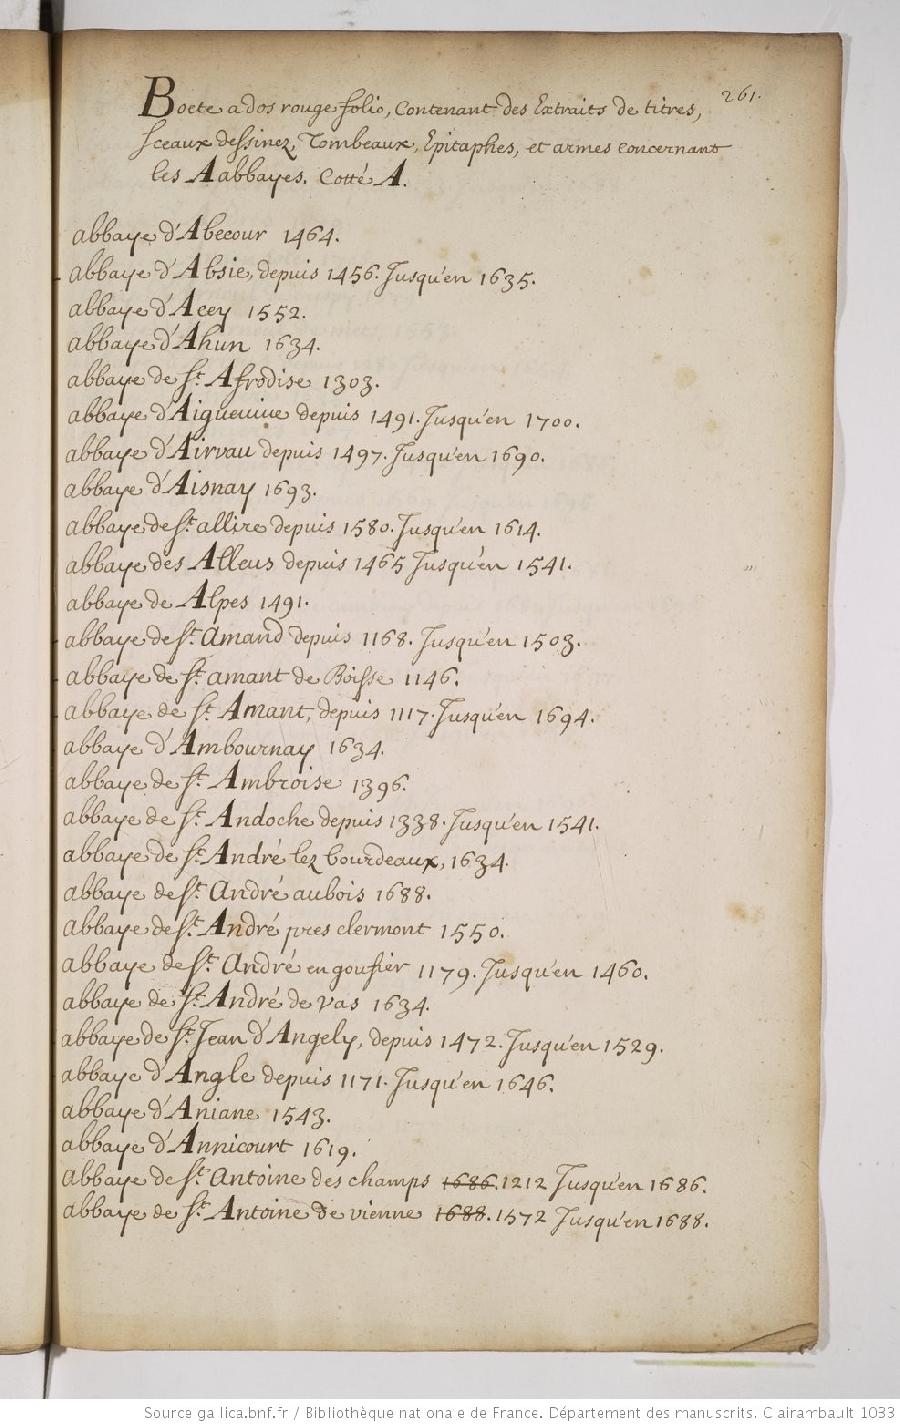 261.
Boete a dos rouge folio, Contenant des Extraits de titres,
Sceaux dessinez, Tombeaux, Epitaphes, et armes concernant
les Aabbayes. Cotté A.
abbaye d'Abecour 1464.
abbaye d'Absie, depuis 1456. Jusqu'en 1635.
abbaye d'Acey 1552.
abbaye d'Ahun 1634.
abbaye de St. Afrodise 1303.
abbaye d'Aiguevive depuis 1491. Jusqu'en 1700.
abbaye d'Airvau depuis 1497. Jusqu'en 1690.
abbaye d'Aisnay 1693.
abbaye de St. allire depuis 1580. Jusqu'en 1614.
abbaye des Alleus depuis 1465 Jusqu'en 1541.
abbaye de Alpes 1491.
abbaye de St. Amand depuis 1168. Jusqu'en 1503.
abbaye de St. amant de Boisse 1146.
abbaye de St. Amant, depuis 1117. Jusqu'en 1694.
abbaye d'Ambournay 1634.
abbaye de St. Ambroise 1396.
abbaye de St. Andoche depuis 1338. Jusqu'en 1541.
abbaye de St. André lez bourdeaux, 1634.
abbaye de St. André aubois 1688.
abbaye de St. André pres clermont 1550.
abbaye de St. André en goufier 1179. Jusqu'en 1460.
abbaye de St. André de vas 1634.
abbaye de St. Jean d'Angely, depuis 1472. Jusqu'en 1529.
abbaye d'Angle depuis 1171. Jusqu'en 1646.
abbaye d'Aniane 1543.
abbaye d'Annicourt 1619.
abbaye de St. Antoine des champs 1686. 1212 Jusqu'en 1686.
abbaye de St. Antoine de vienne 1688. 1572 Jusqu'en 1688.
Source gallica.bnf.fr / Bibliothèque nationale de France. Département des manuscrits. Clairambault 1033